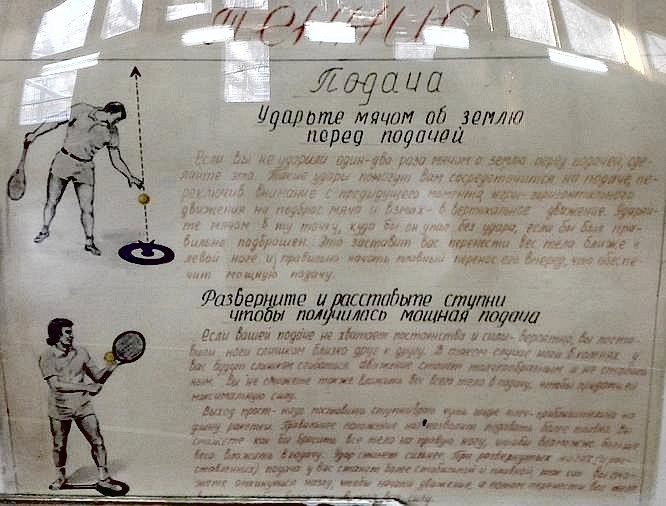 ТЕННИС
Подача
Ударьте мячом об землю
перед подачей
Если вы не ударили один-два раза мячом о землю перед подачей, сде-
лайте это. Такие удары помогут вам сосредоточится на подаче, пе-
реключив внимание с предыдущего момента игры-горизонтального
движения на подброс мяча и взмах- в вертикальное движение. Ударь-
те мячом в ту точку, куда бы он упал без удара, если бы был пра-
вильно подброшен. Это заставит вас перенести вес тела ближе к
левой ноге и правильно начать плавный перенос его вперед, что обеспе-
чит мощную подачу.
Разверните и расставьте ступни
чтобы получилась мощная подача
Если вашей подаче не хватает постоянства и силы- вероятно, вы поста-
вили ноги слишком близко друг к другу. В таком случае ноги в коленях у
вас будут слишком сгибаться, движение станет толчкообразным и не стабиль-
ным. Вы не сможете также вложить вес всего тела в подачу, чтобы придать ей
максимальную силу.
Выход прост- надо поставить ступни чуть шире плеч-приблизительно на
длину ракетки. Правильное положение ног позволит подавать более плавно. Вы
сможете как бы бросить все тело на правую ногу, чтобы возможно больше
веса вложить в подачу. Удар станет сильнее. При развернутых ногах
подача у вас станет более стабильной и плавной, так как вы смо-
жете откинуться назад, чтобы начать движение, а потом перенести вес
силу.